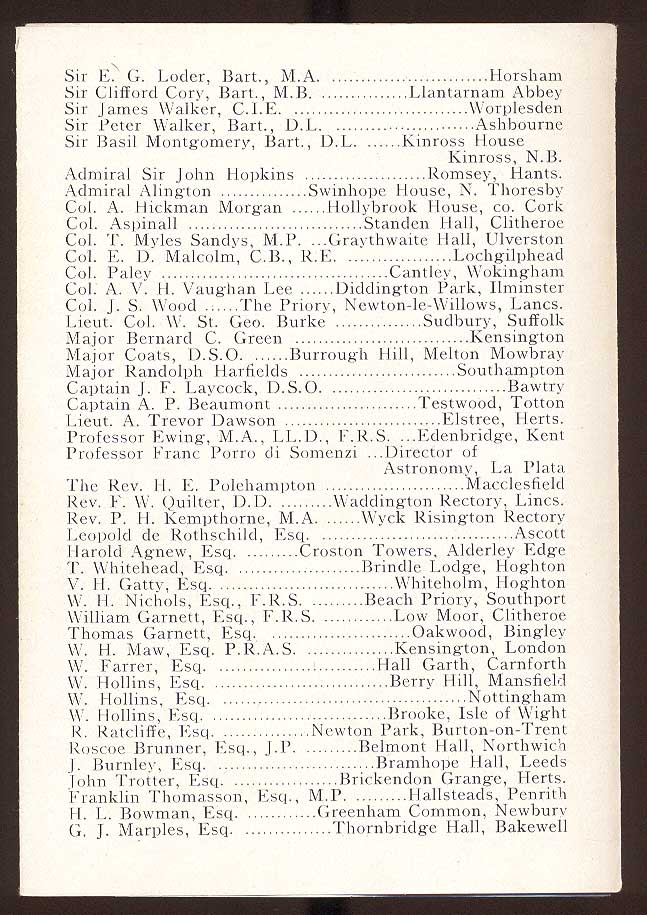 Sir E. G. Loder, Bart., M.A. ...........................Horsham
Sir Clifford Cory, Bart., M.B. ...............Llantarnam Abbey
Sir James Walker, C.I.E. ..............................Worplesden
Sir Peter Walker, Bart., D.L. ........................Ashbourne
Sir Basil Montgomery, Bart., D.L. ......Kinross House
Kinross, N.B.
Admiral Sir John Hopkins .....................Romsey, Hants.
Admiral Alington ...............Swinhope House, N. Thoresby
Col. A. Hickman Morgan ......Hollybrook House, co. Cork
Col. Aspinall ..............................Standen Hall, Clitheroe
Col. T. Myles Sandys, M.P. ...Graythwaite Hall, Ulverston
Col. E. D. Malcolm, C.B., R.E. ..................Lochgilphead
Col. Paley .......................................Cantley, Wokingham
Col. A. V. H. Vaughan Lee ......Diddington Park, Ilminster
Col. J. S. Wood ......The Priory, Newton-le-Willows, Lancs.
Lieut. Col. W. St. Geo. Burke ...............Sudbury, Suffolk
Major Bernard C. Green ..............................Kensington
Major Coats, D.S.O. ......Burrough Hill, Melton Mowbray
Major Randolph Harfields ...........................Southampton
Captain J. F. Laycock, D.S.O. ..............................Bawtry
Captain A. P. Beaumont ........................Testwood, Totton
Lieut. A. Trevor Dawson ...........................Elstree, Herts.
Professor Ewing, M.A., LL.D., F.R.S. ...Edenbridge, Kent
Professor Franc Porro di Somenzi ...Director of
Astronomy, La Plata
The Rev. H. E. Polehampton ........................Macclesfield
Rev. F. W. Quilter, D.D. .........Waddington Rectory, Lincs.
Rev. P. H. Kempthorne, M.A. ......Wyck Risington Rectory
Leopold de Rothschild, Esq. .................................Ascott
Harold Agnew, Esq. .........Croston Towers, Alderley Edge
T. Whitehead, Esq. .....................Brindle Lodge, Hoghton
V. H. Gatty, Esq. ..............................Whiteholm, Hoghton
W. H. Nichols, Esq., F.R.S. .........Beach Priory, Southport
William Garnett, Esq., F.R.S. ............Low Moor, Clitheroe
Thomas Garnett, Esq. ........................Oakwood, Bingley
W. H. Maw, Esq. P.R.A.S. ...............Kensington, London
W. Farrer, Esq. ...........................Hall Garth, Carnforth
W. Hollins, Esq. ..............................Berry Hill, Mansfield
W. Hollins, Esq. ..........................................Nottingham
W. Hollins, Esq. ..............................Brooke, Isle of Wight
R. Ratcliffe, Esq. ...............Newton Park, Burton-on-Trent
Roscoe Brunner, Esq., J.P. .........Belmont Hall, Northwich
J. Burnley, Esq. ...........................Bramhope Hall, Leeds
John Trotter, Esq. ..................Brickendon Grange, Herts.
Franklin Thomasson, Esq., M.P. .........Hallsteads, Penrith
H. L. Bowman, Esq. ............Greenham Common, Newbury
G. J. Marples, Esq. ...............Thornbridge Hall, Bakewell